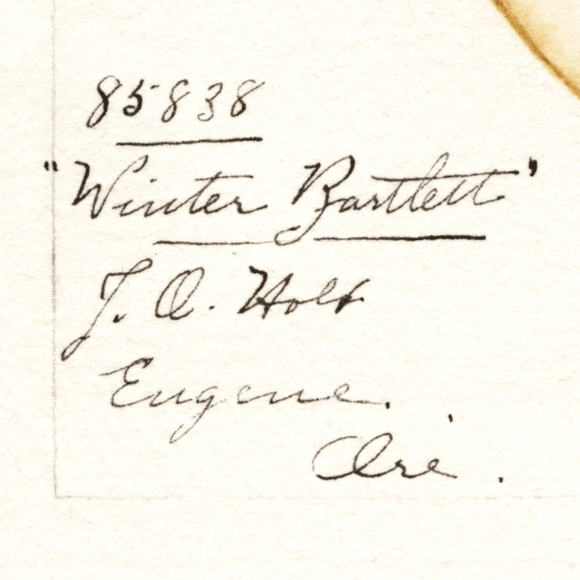 85838
"Winter Bartlett"
J. O. Holt
Eugene.
Ore.